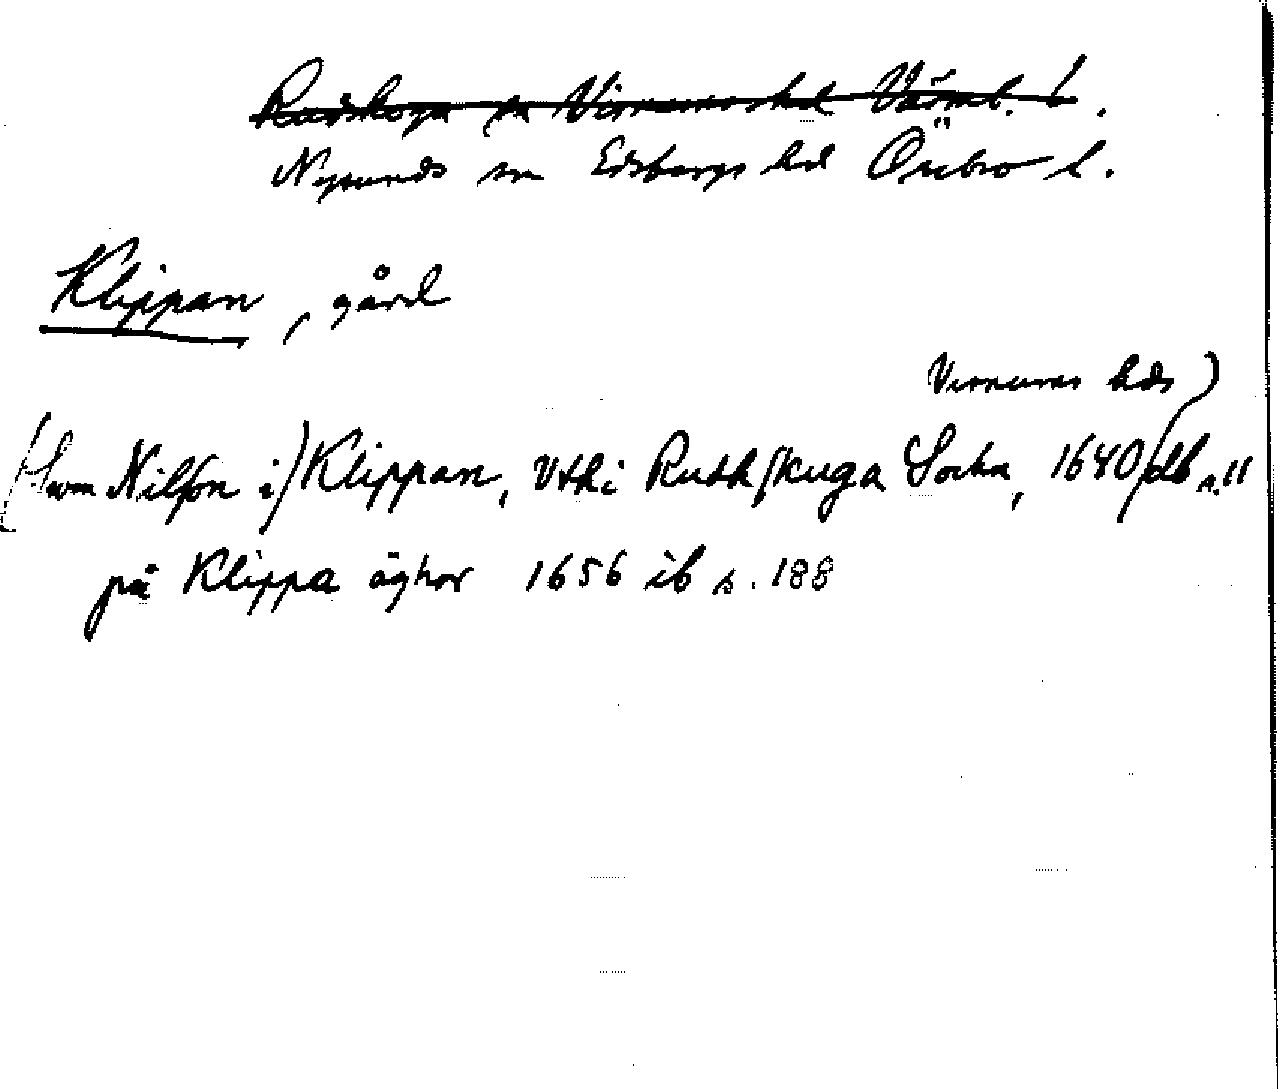 Rudskoga sn Visnums hd Värml. l.
Nysunds sn Edsbergs hd Örebro l.
Klippan, gård
Visnums hds)
(Swen Nilſon i) Klippan, Vthi Rudhſkuga Sochn, 1640 db s. 11
på Klippa äghor 1656 ib s. 188